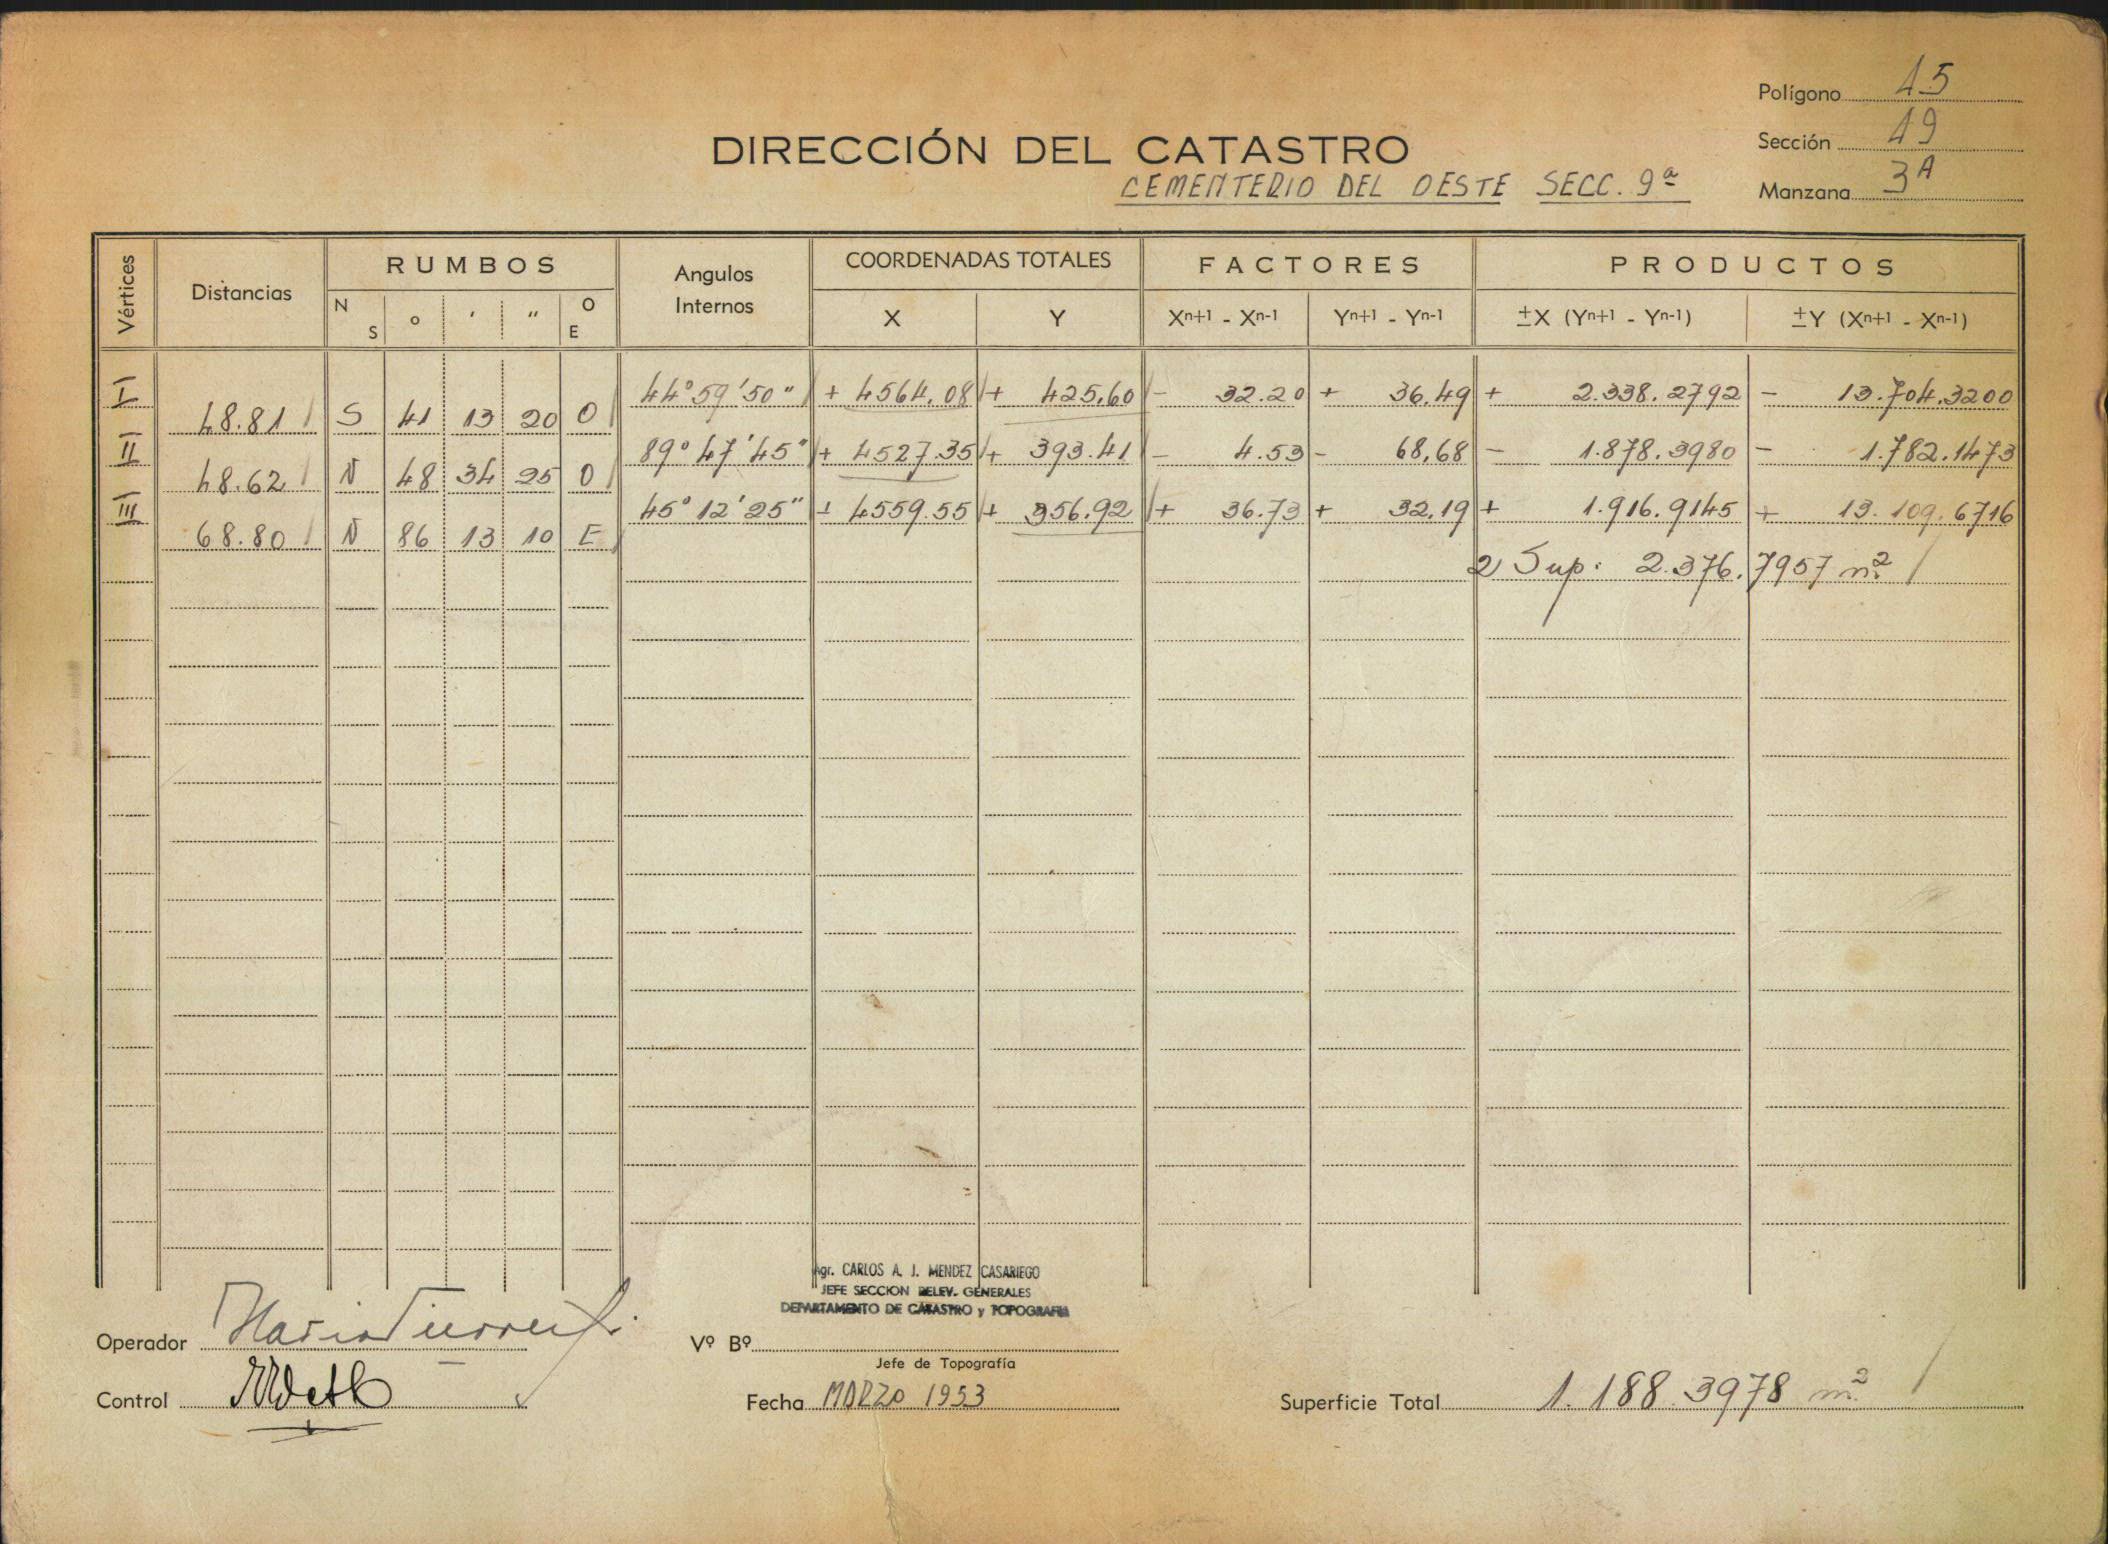 Polígono 15
Sección 19
Manzana 3A
DIRECCIÓN DEL CATASTRO
CEMENTERIO DEL OESTE SECC. 9ª
Vértices Distancias RUMBOS Angulos Internos COORDENADAS TOTALES FACTORES PRODUCTOS
N S ° ' " O E X Y Xn+1 - Xn-1 Yn+1 - Yn-1 ±X (Yn+1 - Yn-1) ±Y (Xn+1 - Xn-1)
I 44°59'50" + 4564.08 + 425.60 - 32.20 + 36.49 + 2.338.2792 - 13.704.3200
48.81 S 41 13 20 O
II 89°47'45" + 4527.35 + 393.41 - 4.53 - 68.68 - 1.878.3980 - 1.782.1473
48.62 N 48 34 25 O
III 45°12'25" + 4559.55 + 356.92 + 36.73 + 32.19 + 1.916.9145 + 13.109.6716
68.80 N 86 13 10 E
2 Sup: 2.376.7957 m²
Agr. CARLOS A. J. MENDEZ CASARIEGO
JEFE SECCION RELEV. GENERALES
DEPARTAMENTO DE CATASTRO y TOPOGRAFIA
Operador
Vº Bº
Jefe de Topografía
Control
Fecha MARZO 1953
Superficie Total 1.188.3978 m²